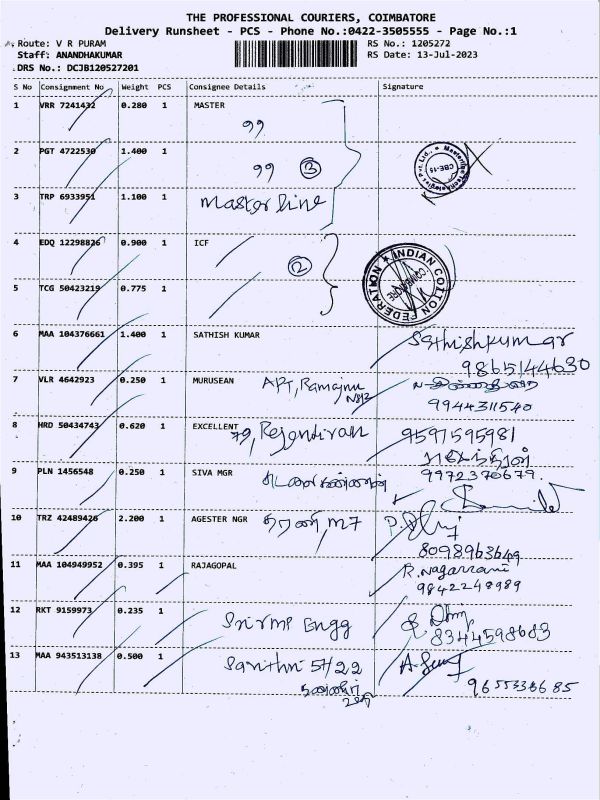 THE PROFESSIONAL COURIERS, COIMBATORE
Delivery Runsheet - PCS - Phone No.:0422-3505555 - Page No.:1
Route: V R PURAM
RS No.: 1205272
Staff: ANANDHAKUMAR
RS Date: 13-Jul-2023
DRS No.: DCJB120527201
S No Consignment No Weight PCS Consignee Details Signature
1 VRR 7241432 0.280 1 MASTER
99
2 PGT 4722530 1.400 1
99 3
3 TRP 6933951 1.100 1 Master line
4 EDQ 12298826 0.900 1 ICF
2
INDIAN COTTON FEDERATION
5 TCG 50423219 0.775 1
6 MAA 104376661 1.400 1 SATHISH KUMAR Sathishkumar
9865144630
7 VLR 4642923 0.250 1 MURUSEAN APT, Ramajnu
9944311540
8 HRD 50434743 0.620 1 EXCELLENT 79, Rejendiran 9597595981
9 PLN 1456548 0.250 1 SIVA MGR 9972370679
10 TRZ 42489426 2.200 1 AGESTER NGR
8098963649
11 MAA 104949952 0.395 1 RAJAGOPAL R. Nagarrani
9842248989
12 RKT 9159973 0.235 1 Engg
8344598683
13 MAA 943513138 0.500 1 5H/22
9655338685